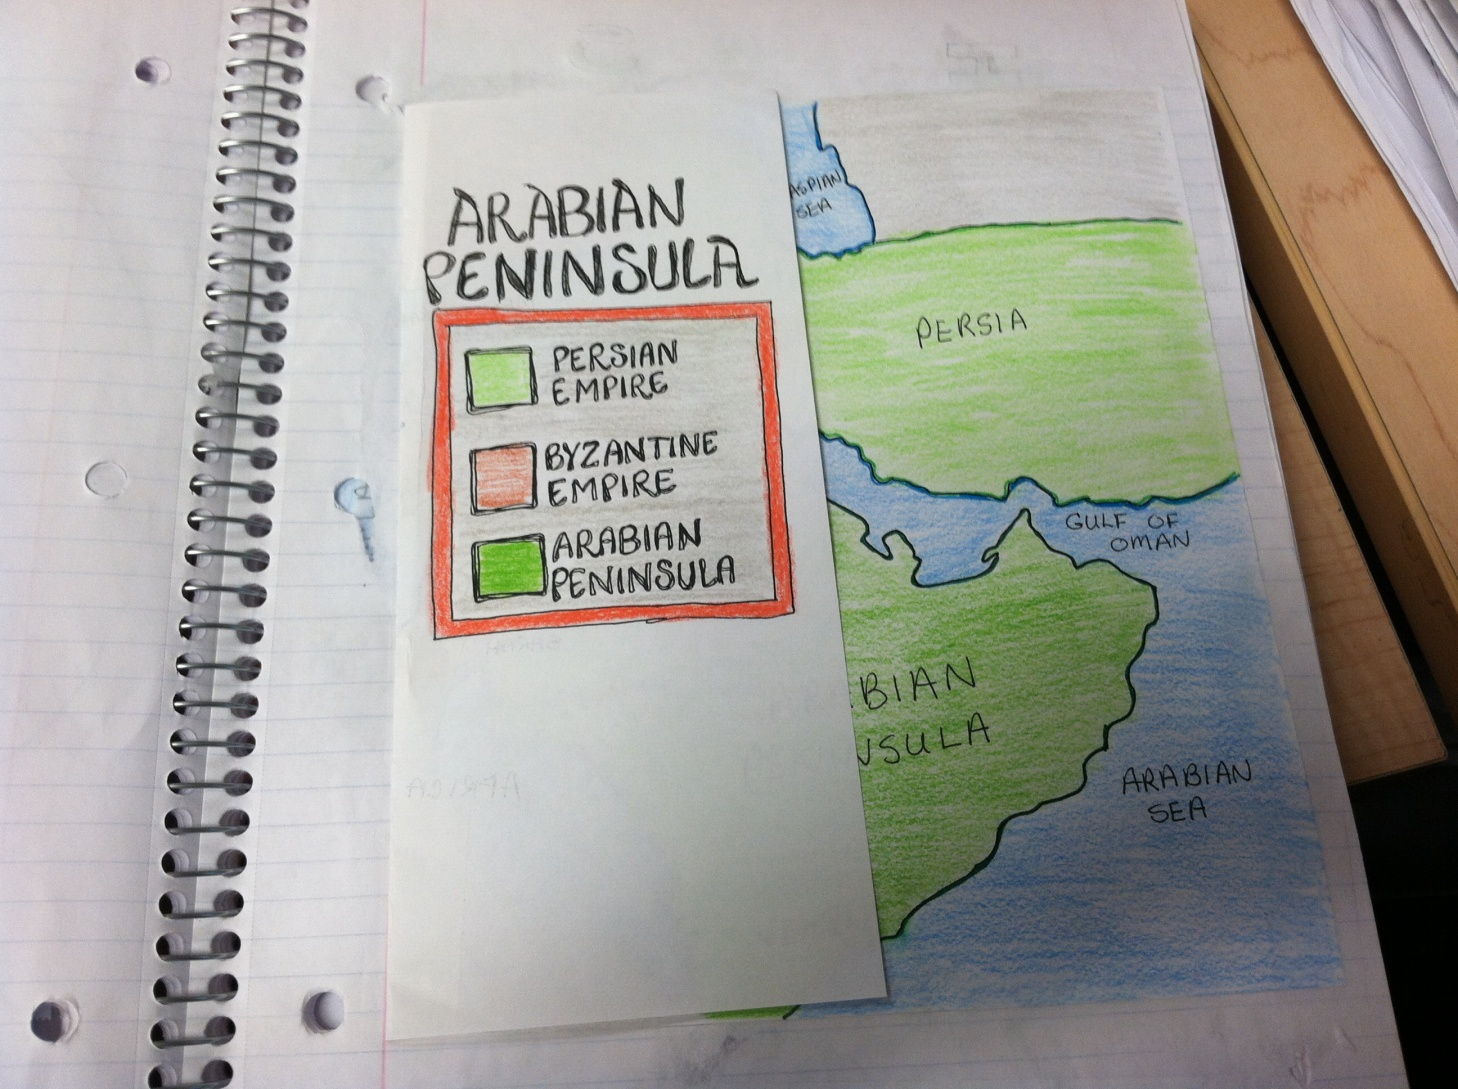 ARABIAN
PENINSULA
PERSIAN
EMPIRE
BYZANTINE
EMPIRE
ARABIAN
PENINSULA
ASPIAN
SEA
PERSIA
GULF OF
OMAN
BIAN
NSULA
ARABIAN
SEA